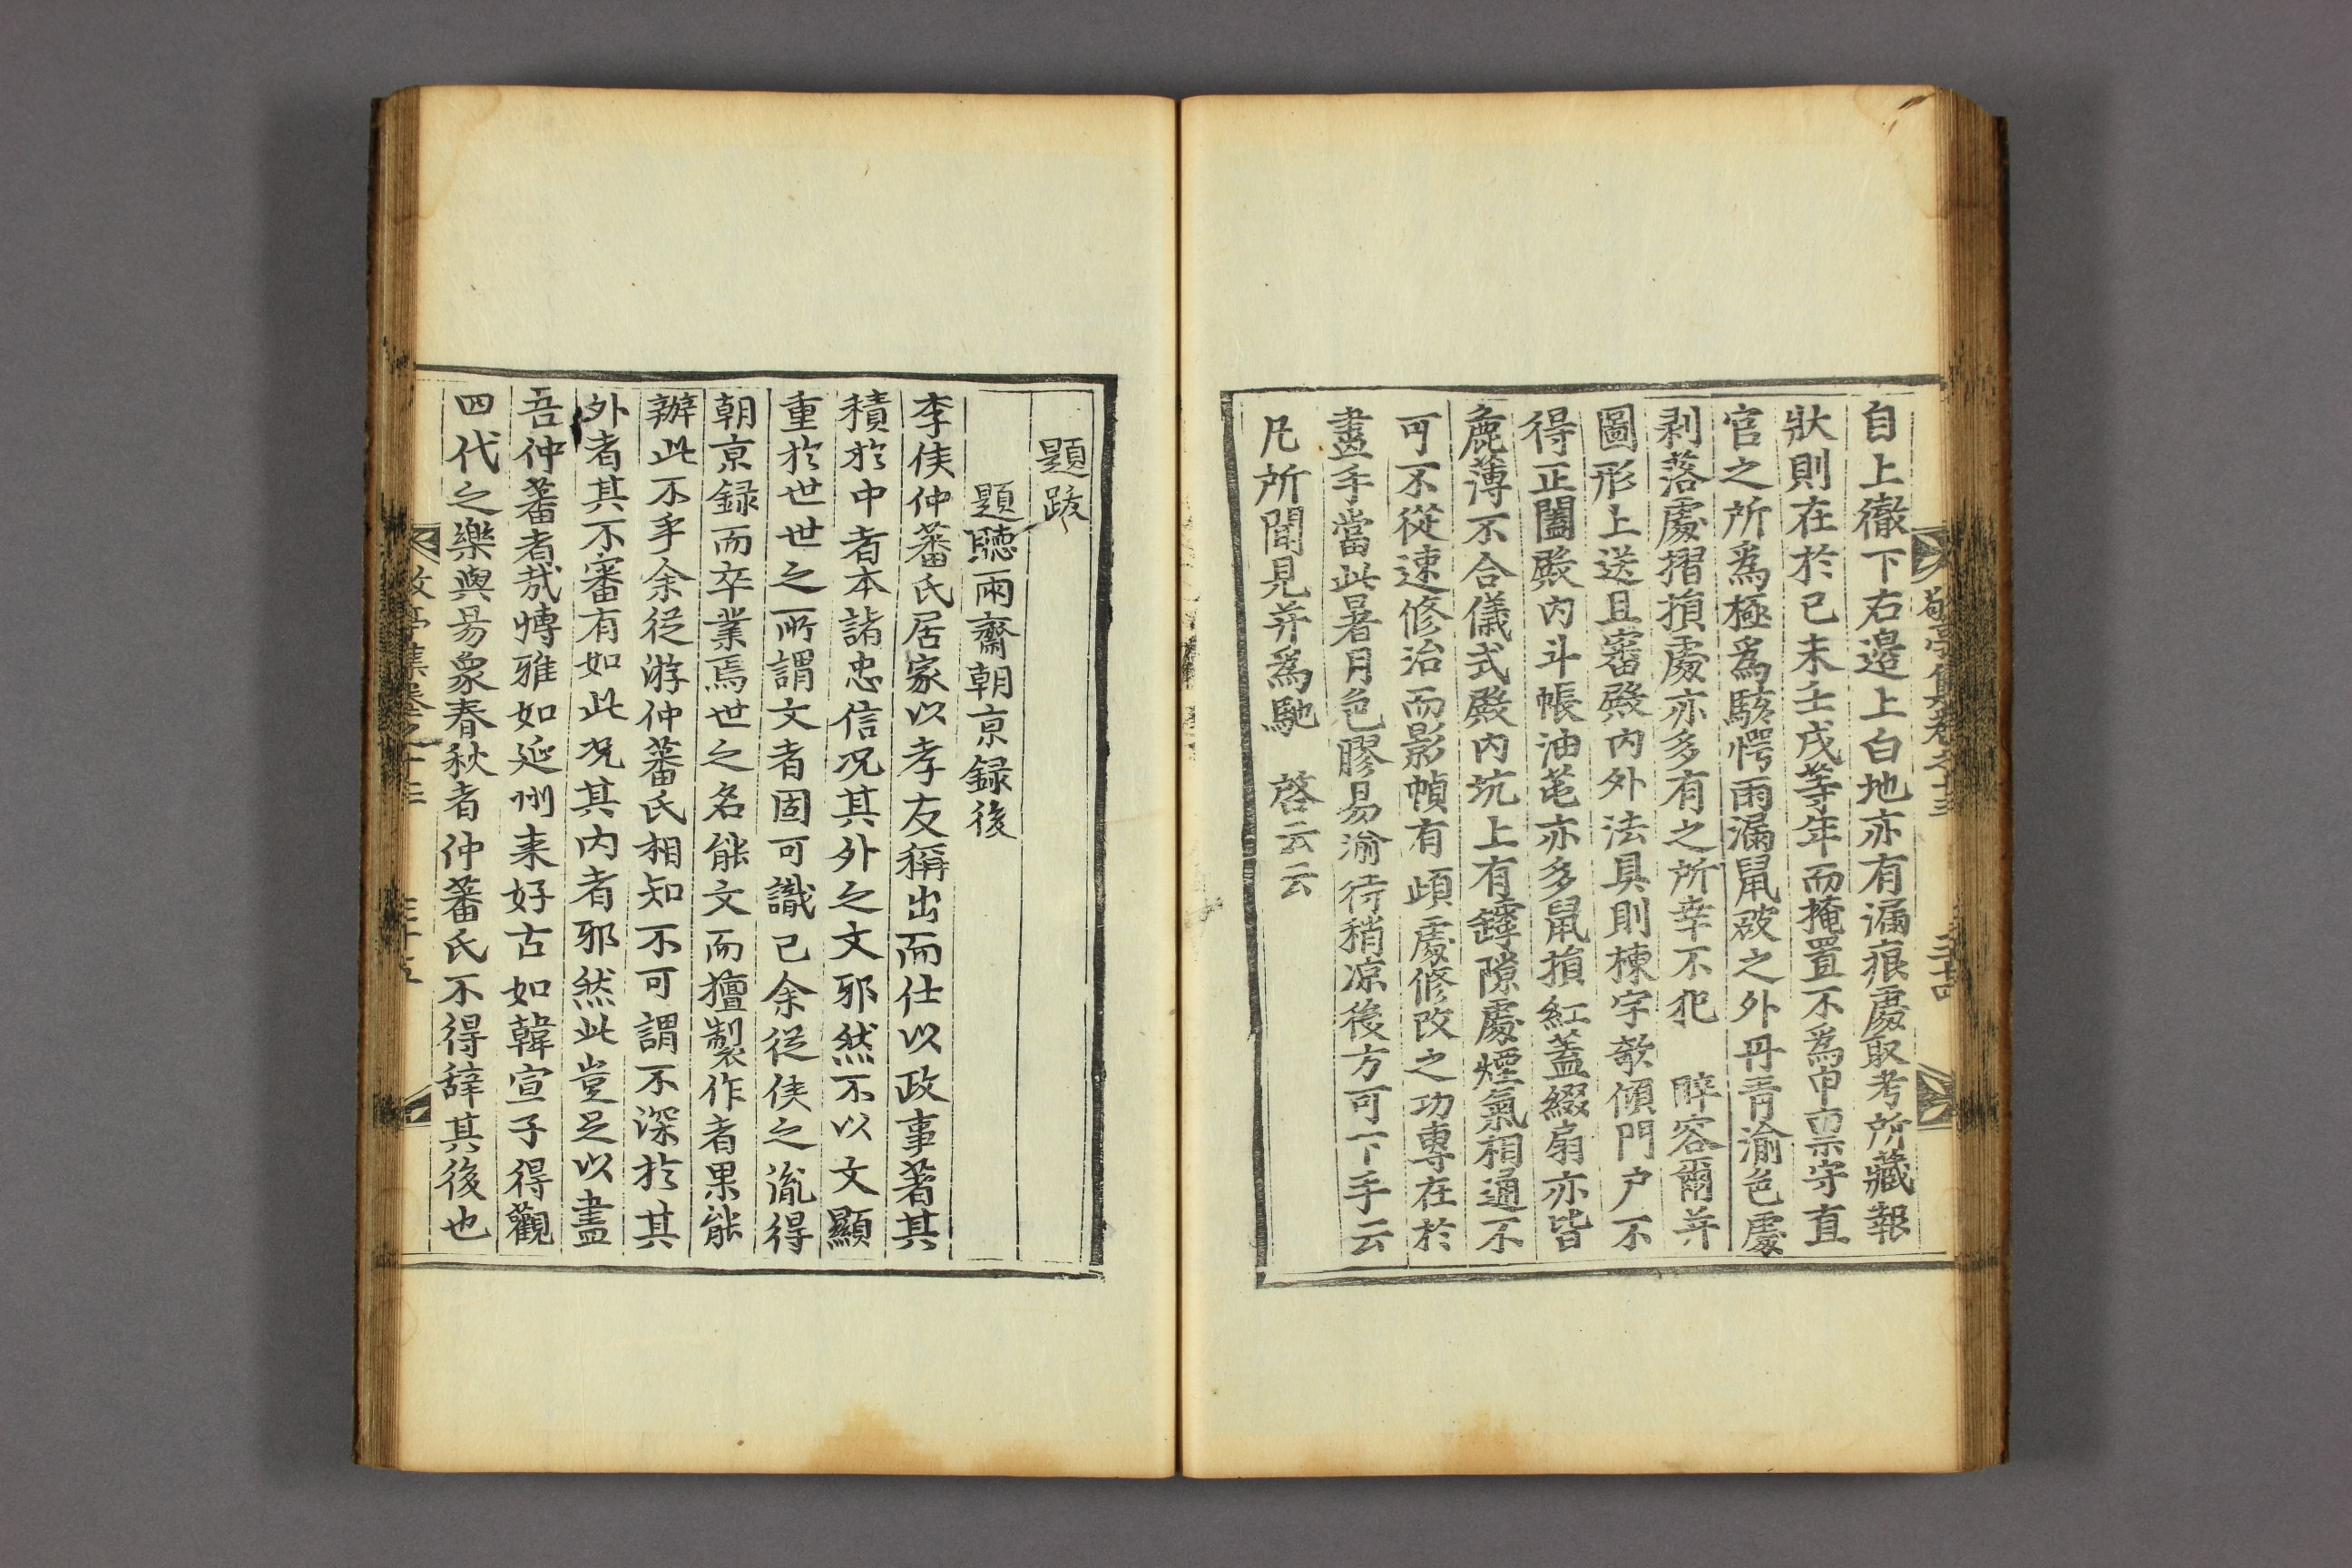 敬亭集卷之十三 三十四
自上徹下右邉上白地亦有漏痕處取考所藏報
狀則在於已未壬戌等年而掩置不爲申禀守直
官之所爲極爲駭愕雨漏鼠破之外丹靑渝色處
剥落處摺損處亦多有之所幸不犯 睟容爾并
圖形上送且審殿內外法具則棟宇欹傾門戶不
得正闔殿內斗帳油芚亦多鼠損紅盖綴扇亦皆
麁薄不合儀式殿內炕上有罅隙處煙氣相通不
可不從速修治而影幀有頉處修改之功專在於
畫手當此暑月色膠易渝待稍凉後方可下手云
凡所聞見并爲馳 啓云云
題跋
題聽雨齋朝京録後
李侯仲蕃氏居家以孝友稱出而仕以政事著其
積於中者本諸忠信况其外之文邪然不以文顯
重於世世之所謂文者固可識已余從侯之胤得
朝京録而卒業焉世之名能文而擅製作者果能
辦此不乎余從游仲蕃氏相知不可謂不深於其
外者其不審有如此况其内者邪然此豈足以盡
吾仲蕃者㢤慱雅如延州来好古如韓宣子得觀
四代之樂與昜象春秋者仲蕃氏不得辞其後也
敬亭集卷之十三 三十五